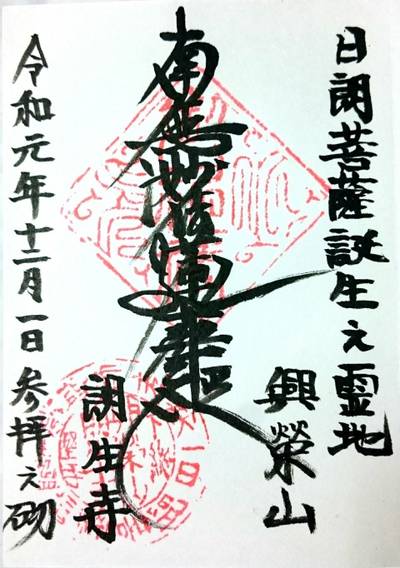 日朗菩薩誕生之霊地
興榮山
南無妙法蓮華経
朗生寺
令和元年十二月一日参拝之砌